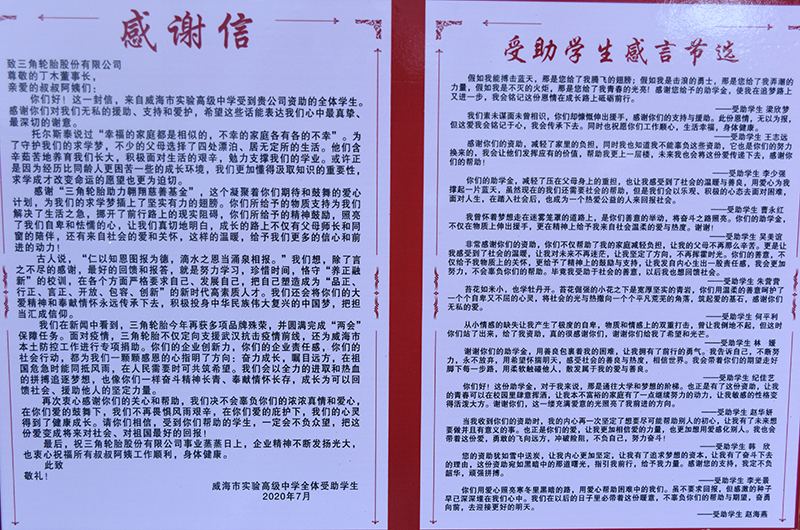 感谢信
致三角轮胎股份有限公司
尊敬的丁木董事长，
亲爱的叔叔阿姨们：
你们好！这一封信，来自威海市实验高级中学受到贵公司资助的全体学生。
感谢你们对我们无私的援助、支持和爱护，希望这些话能表达我们心中最真挚、
最深切的谢意。
托尔斯泰说过“幸福的家庭都是相似的，不幸的家庭各有各的不幸”。为
了守护我们的求学梦，不少的父母选择了四处漂泊、居无定所的生活。他们含
辛茹苦地养育我们长大，积极面对生活的艰辛，勉力支撑我们的学业。或许正
是因为经历比同龄人更困苦一些的成长环境，我们更加懂得汲取知识的重要性，
求学成才改变命运的愿望也更为迫切。
感谢“三角轮胎助力翱翔慈善基金”，这个凝聚着你们期待和鼓舞的爱心
计划，为我们的求学梦插上了坚实有力的翅膀。你们所给予的物质支持为我们
解决了生活之急，挪开了前行路上的现实阻碍，你们所给予的精神鼓励，照亮
了我们自卑和怯懦的心，让我们真切地明白，成长的路上不仅有父母师长和同
窗的陪伴，还有来自社会的爱和关怀，这样的温暖，给予我们更多的信心和前
进的动力！
古人说，“仁以知恩图报为德，滴水之恩当涌泉相报。”我们想，除了言
之不尽的感谢，最好的回馈和报答，就是努力学习，珍惜时间，恪守“养正融
新”的校训，在各个方面严格要求自己、发展自己，把自己塑造成为“品正、
行正、言正、开放、包容、创新”的新时代高素质人才。我们还会将你们的大
爱精神和奉献情怀永远传承下去，积极投身中华民族伟大复兴的中国梦，把担
当汇成信仰。
我们在新闻中看到，三角轮胎今年再获多项品牌殊荣，并圆满完成“两会”
保障任务。面对疫情，三角轮胎不仅定向支援武汉抗击疫情前线，还为威海市
本土防控工作进行专项捐助。你们的企业创新力，你们的企业责任感，你们的
社会行动，都为我们一颗颗感恩的心指明了方向：奋力成长，瞩目远方，在祖
国危急时能同抵风雨，在人民需要时可共筑希望。我们会以全力的进取和热血
的拼搏追逐梦想，也像你们一样奋斗精神长青、奉献情怀长存，成长为可以回
馈社会、援助他人的坚定力量。
再次衷心感谢你们的关心和帮助，我们决不会辜负你们的浓浓真情和爱心，
在你们爱的鼓舞下，我们不再畏惧风雨艰辛，在你们爱的庇护下，我们的心灵
得到了健康成长。请你们相信，受到你们帮助的学生，一定会不负众望，把这
份爱变成将来对社会、对祖国最好的回报！
最后，祝三角轮胎股份有限公司事业蒸蒸日上，企业精神不断发扬光大，
也衷心祝福所有叔叔阿姨工作顺利，身体健康。
此致
敬礼！
威海市实验高级中学全体受助学生
2020年7月
受助学生感言节选
假如我能搏击蓝天，那是您给了我腾飞的翅膀；假如我是击浪的勇士，那是您给了我弄潮的
力量；假如我是不灭的火炬，那是您给了我青春的光亮！感谢您给予的助学金，使我在追梦路上
又进一步，我会铭记这份恩情在成长路上砥砺前行。
——受助学生 梁欣梦
我们素未谋面未曾相识，你们却慷慨伸出援手，感谢你们的支持与援助。此份恩情，无以为报，
但这爱我会铭记于心，我会传承下去。同时也祝愿你们工作顺心，生活幸福，身体健康。
——受助学生 王志远
感谢你们的资助，减轻了家里的负担，同时我也知道我不能辜负这些资助，它也是你们的努力
换来的，我会让他们发挥应有的价值，帮助我更上一层楼，未来我也会将这份爱传递下去，感谢你
们的帮助！
——受助学生 李少强
你们的助学金，减轻了压在父母身上的重担，也让我感受到了社会的温暖与善良，用爱心为我
撑起一片蓝天，虽然现在的我们还需要社会的帮助，但是我们会以乐观、积极的心态去面对困难，
面对人生，在踏入社会后，也成为一个热爱公益的人来回报社会。
——受助学生 曹永红
我曾怀着梦想走在迷雾笼罩的道路上，是你们善意的举动，将奋斗之路照亮。你们的助学金，
不仅在物质上伸出援手，更在精神上给予我来自社会温柔的爱与热度。谢谢！
——受助学生 吴美谊
非常感谢你们的资助，你们不仅帮助了我的家庭减轻负担，让我的父母不再那么辛苦。更是让
我感受到了社会的温暖，让我对未来不再迷茫，让我坚定了方向，不再挥霍时光。你们的善意，不
仅给予我物质上的关怀，更给予了精神上的鼓励与支持，让我发自内心生出一股责任感，我会更加
努力，不会辜负你们的帮助。毕竟我受助于社会的善意，以后我也想回馈社会。
——受助学生 朱萱萱
苔花如米小，也学牡丹开。苔花倔强的小花之下是宽厚坚实的青岩，你们用温柔的善意呵护了
一个个自卑又不屈的心灵，将社会的光与热撒向一个个平凡荒芜的角落，筑起爱的基石，感谢你们
无私的爱。
——受助学生 何平利
从小情感的缺失让我产生了极度的自卑，物质和情感上的双重打击，曾让我倒地不起，但这时
你们站了出来，给了我资助，真的很感谢你们，谢谢你们给我了希望和光芒。
——受助学生 林 媛
谢谢你们的助学金，用善良包裹着我的困难，让我拥有了前行的勇气。我告诉自己，不断努
力，永不放弃，用希望怀揣明天，感受社会的善良与热度，相信世界。我会带着你们的期望走好
脚下每一步路，用柔软触碰他人，散发属于我的爱与善良。
——受助学生 纪佳艺
你们好！这份助学金，对于我来说，那是通往大学和梦想的阶梯。也正是有了这份资助，让我
的青春可以在校园里肆意挥洒，让我本不富裕的家庭有了一点继续努力的动力，让我敏感的性格变
得活泼大方。谢谢你们，这一缕充满爱意的光照亮了我前进的方向。
——受助学生 赵华妍
当我收到你们的资助时，我的内心再一次坚定了想要尽可能帮助别人的初心，让我有了未来想
要做并且有意义的事。也正是你们的爱，让我更加相信爱的力量，也更加想用爱感化别人。我也会
带着这份爱，勇敢的飞向远方，冲破险阻，不负自己，努力奋斗！
——受助学生 韩 欣
您的资助犹如雪中送炭，让我内心更加坚定，让我有了追求梦想的资本，让我有了奋斗下去
的理由，这份资助宛如黑暗中的那道曙光，指引我前行，给予我力量。感谢您的支持，我定不负
韶华，顽强拼搏。
——受助学生 李光晨
你们用爱心照亮寒冬里黑暗的路，用爱心帮助困难中的我们。虽不要求回报，但感激的种子
早已深深埋在我们心中。我们在以后的日子里必带着这份暖意，不辜负你们的帮助与期望，奋勇
向前，去迎接更好的明天。
——受助学生 赵海燕